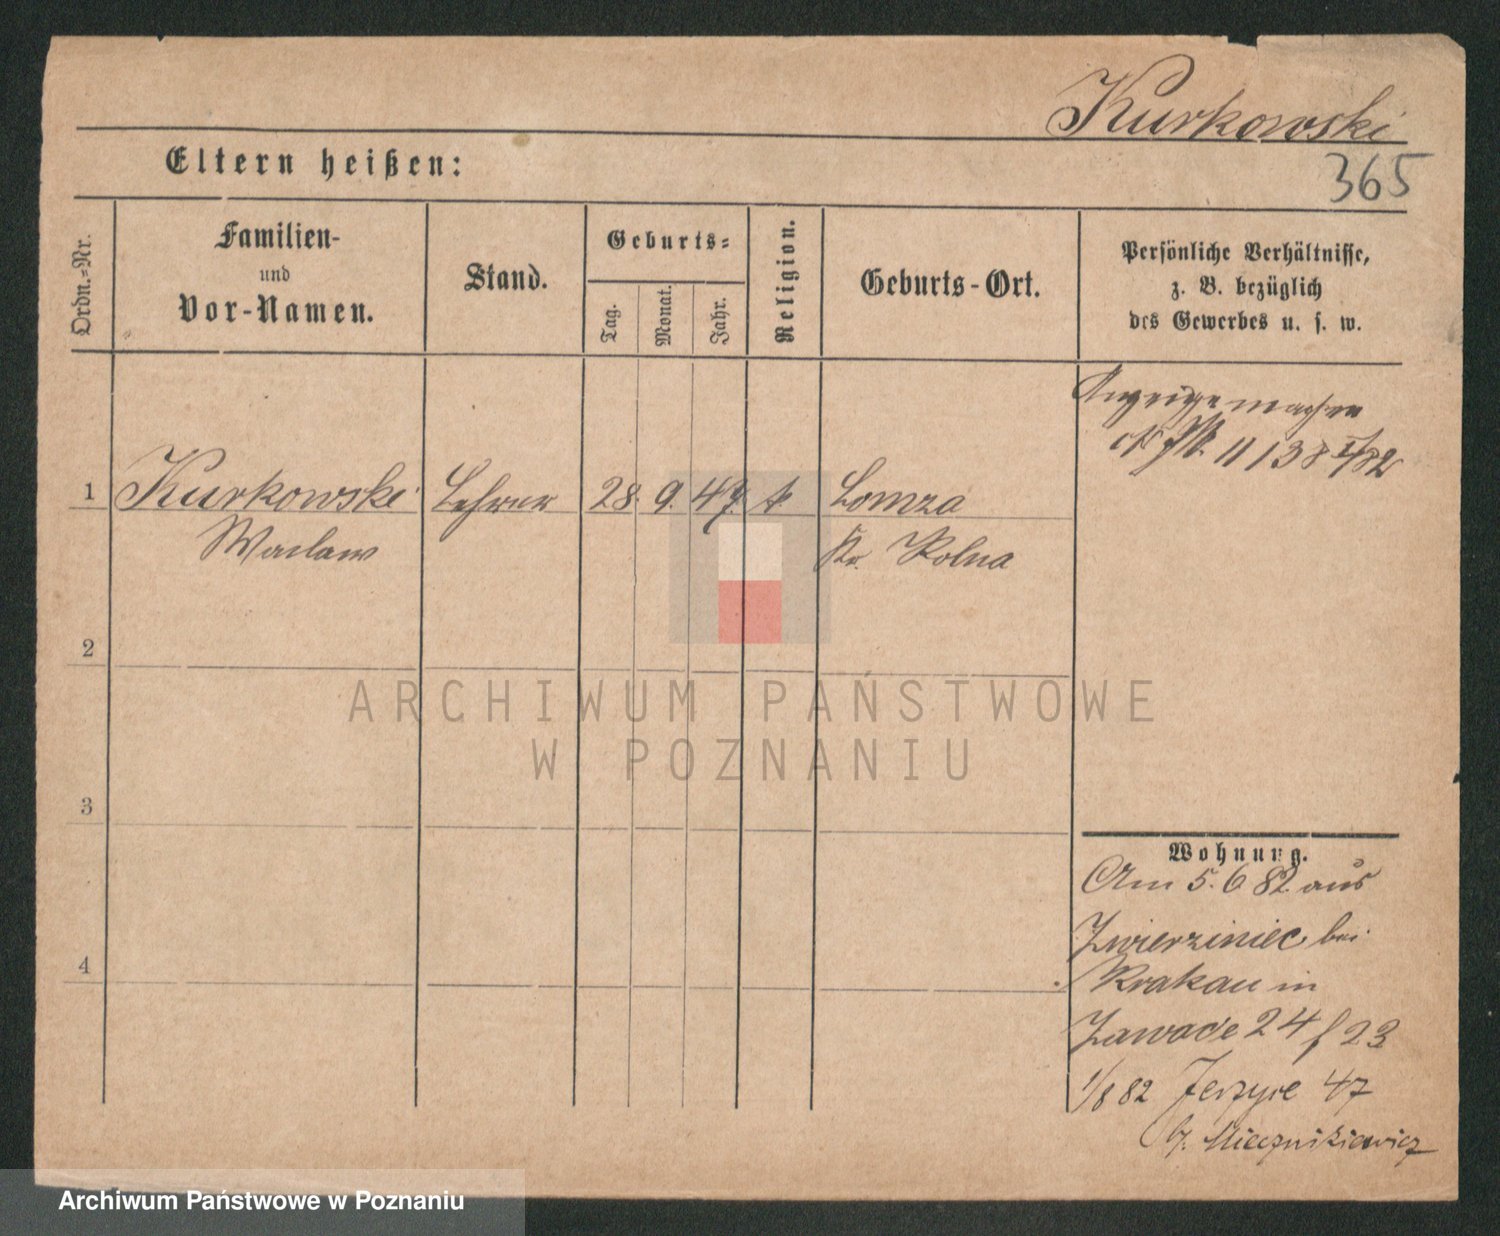 Kurkowski
365
Eltern heißen:
Ordn.-Nr.
Familien-
und
Vor-Namen.
Stand.
Geburts-
Tag.
Monat.
Jahr.
Religion.
Geburts-Ort.
Persönliche Verhältnisse,
z. B. bezüglich
des Gewerbes u. s. w.
Anzeige machen
11138
1 Kurkowski Lehrer 28. 9. 47. k Lomza
Waclaw Kr. Kolna
2
3
4
Wohnung.
Am 5. 6 82. aus
Zwierziniec bei
Krakau in
Zawade 24 f 23
1/8 82 Jerzyce 47
b/. Miecznikiewicz
ARCHIWUM PAŃSTWOWE
W POZNANIU
Archiwum Państwowe w Poznaniu